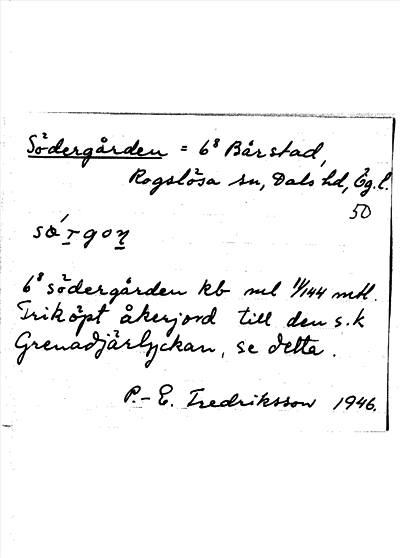 Södergården = 6⁸ Bårstad,
Rogslösa sn, Dals hd, Ög.l.
50
sǿrgoṉ
6⁸ södergården kb ml 11/144 mtl.
Friköpt åkerjord till den s.k
Grenadjärlyckan, se detta.
P.-E. Fredriksson 1946.